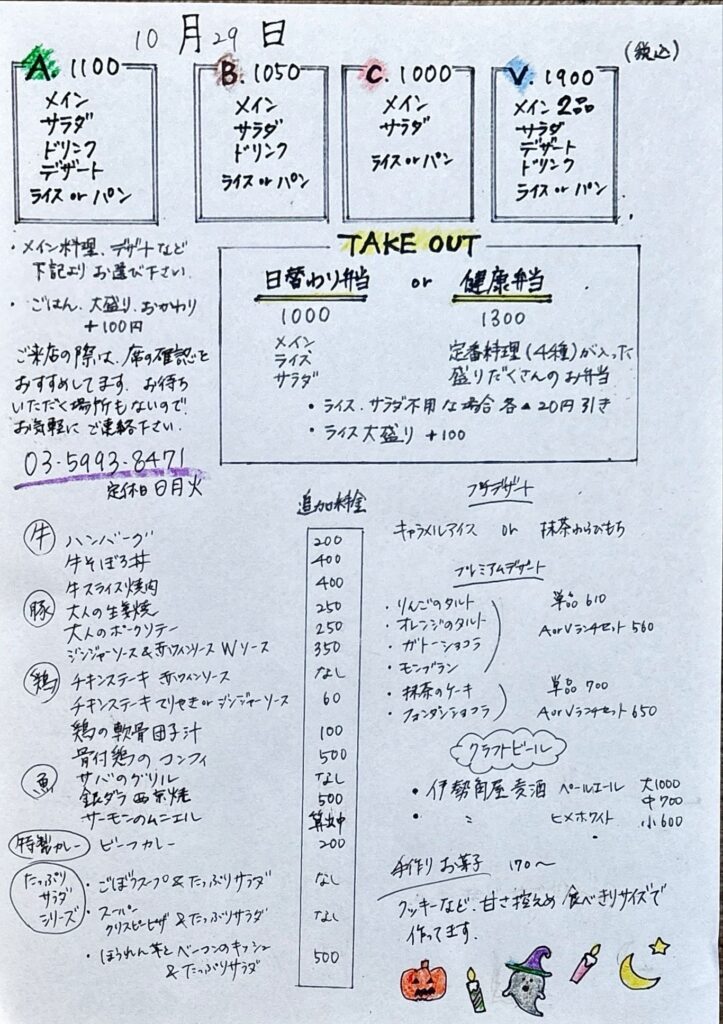 10月29日
(税込)
A. 1100
メイン
サラダ
ドリンク
デザート
ライス or パン
B. 1050
メイン
サラダ
ドリンク
ライス or パン
C. 1000
メイン
サラダ
ライス or パン
V. 1900
メイン 2品
サラダ
デザート
ドリンク
ライス or パン
・メイン料理、デザートなど
下記より お選び下さい.
・ごはん、大盛り、おかわり
+100円
ご来店の際は、席の確認を
おすすめしてます. お待ち
いただく場所もないので
お気軽に ご連絡下さい.
03-5993-8471
定休日 日月火
TAKE OUT
日替わり弁当 or 健康弁当
1000
メイン
ライス
サラダ
1300
定番料理(4種)が入った
盛りだくさんのお弁当
・ライス、サラダ不用な場合 各▲20円引き
・ライス大盛り +100
追加料金
牛 ハンバーグ 200
牛そぼろ丼 400
牛スライス焼肉 400
豚 大人の生姜焼 250
大人のポークソテー 250
ジンジャーソース&赤ワインソース Wソース 350
鶏 チキンステーキ 赤ワインソース なし
チキンステーキ てりやき or ジンジャーソース 60
鶏の軟骨団子汁 100
骨付鶏の コンフィ 500
魚 サバのグリル なし
銀ダラ 西京焼 500
サーモンのムニエル 算出中
特製カレー ビーフカレー 200
たっぷりサラダシリーズ
・ごぼうスープ&たっぷりサラダ なし
・スーパー
クリスピーピザ &たっぷりサラダ なし
・ほうれん草と ベーコンのキッシュ
&たっぷりサラダ 500
プチデザート
キャラメルアイス or 抹茶わらびもち
プレミアムデザート
・りんごのタルト
・オレンジのタルト
・ガトーショコラ
・モンブラン
単品 610
A or Vランチセット 560
・抹茶のケーキ
・フォンダンショコラ
単品 700
A or Vランチセット 650
クラフトビール
・伊勢角屋麦酒 ペールエール 大1000
中700
・ 〃 ヒメホワイト 小600
手作りお菓子 170〜
クッキーなど、甘さ控えめ 食べきりサイズで
作ってます.